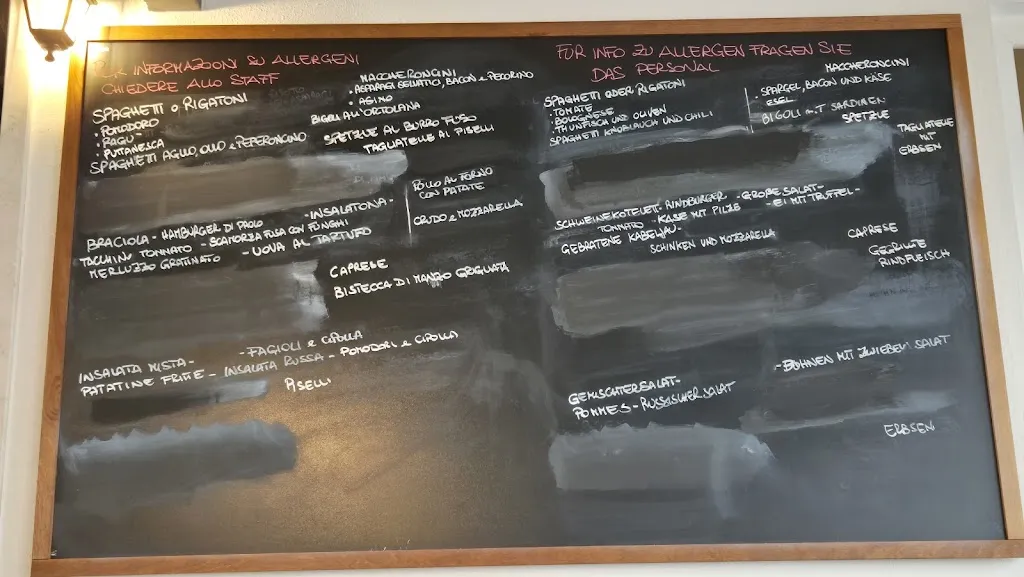 PER INFORMAZIONI SU ALLERGENI
CHIEDERE ALLO STAFF
SPAGHETTI O RIGATONI
• POMODORO
• RAGU'
• PUTTANESCA
SPAGHETTI AGLIO, OLIO e PEPERONCINO
MACCHERONCINI
• ASPARAGI SELVATICI, BACON e PECORINO
• ASINO
BIGOLI ALL'ORTOLANA
SPETZLE AL BURRO FUSO
TAGLIATELLE AI PISELLI
POLLO AL FORNO
CON PATATE
CRUDO e MOZZARELLA
BRACIOLA - HAMBURGER DI
- INSALATONA -
TACCHINO TONNATO - SCAMORZA FUSA CON FUNGHI
MERLUZZO GRATINATO - UOVA AL TARTUFO
CAPRESE
BISTECCA DI MANZO GRIGLIATA
INSALATA MISTA - - FAGIOLI e CIPOLLA
PATATINE FRITTE - INSALATA RUSSA - POMODORI e CIPOLLA
PISELLI
FÜR INFO ZU ALLERGEN FRAGEN SIE
DAS PERSONAL
SPAGHETTI ODER RIGATONI
• TOMATE
• BOLOGNESE
• THUNFISCH UND OLIVEN
SPAGHETTI KNOBLAUCH UND CHILI
MACCHERONCINI
- SPARGEL, BACON UND KÄSE
ESEL
BIGOLI MIT SARDINEN
SPETZLE
TAGLIATELLE
MIT
ERBSEN
SCHWEINEKOTELETT - RINDBURGER - GROBE SALAT -
TONNATO - KÄSE MIT PILZE - EI MIT TRÜFFEL -
GEBRATENE KABELJAU -
SCHINKEN UND MOZZARELLA
CAPRESE
GEGRILLTE
RINDFLEISCH
GEMISCHTERSALAT - - BOHNEN MIT ZWIEBEL SALAT
POMMES - RUSSISCHERSALAT
ERBSEN